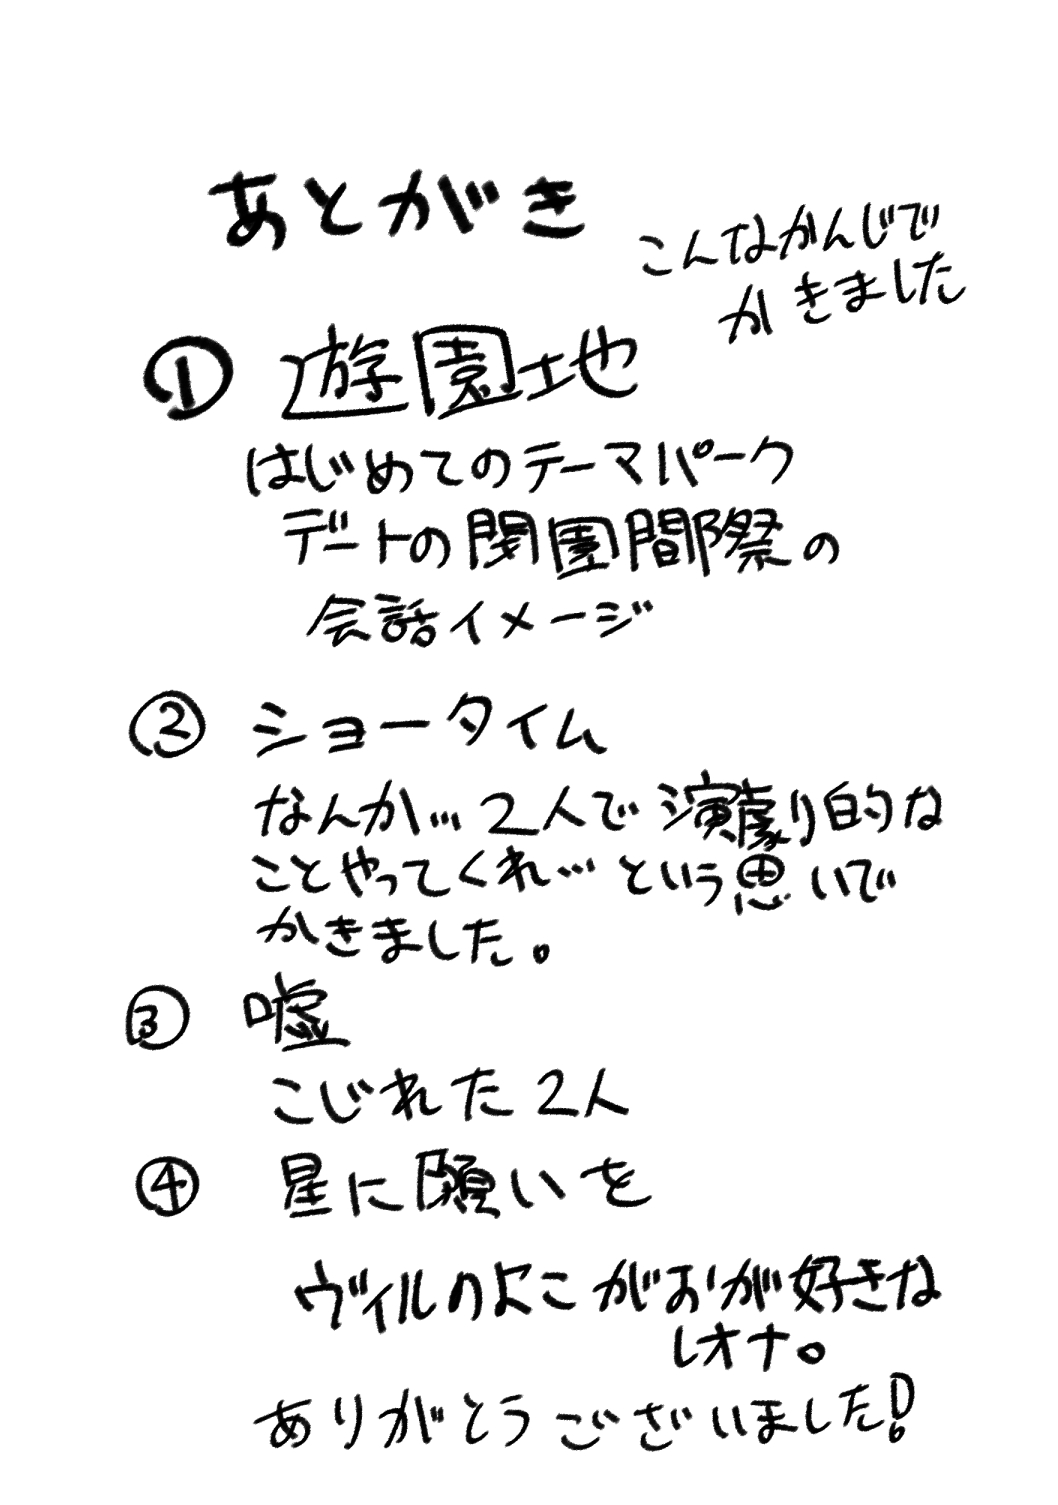 あとがき
こんなかんじで
かきました
① 遊園地
はじめてのテーマパーク
デートの開園間際の
会話イメージ
② ショータイム
なんか…2人で演劇的な
ことやってくれ…という思いで
かきました。
③ 嘘
こじれた2人
④ 星に願いを
ヴィルのよこがおが好きな
レオナ。
ありがとうございました!